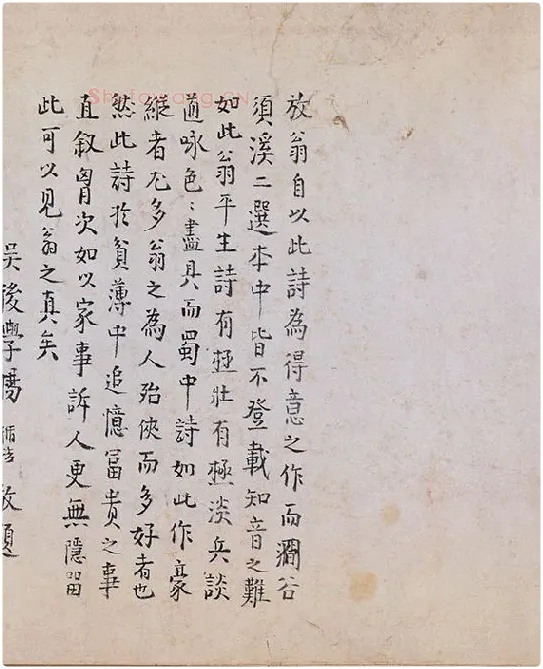 放翁自以此詩為得意之作而澗谷
須溪二選本中皆不登載知音之難
如此翁平生詩有極壯有極淡兵談
道咏色〻盡具而蜀中詩如此作豪
縱者尤多翁之為人殆俠而多好者也
然此詩於貧薄中追憶富貴之事
直叙胷次如以家事訴人更無隱留
此可以見翁之真矣
吳後學 敬題